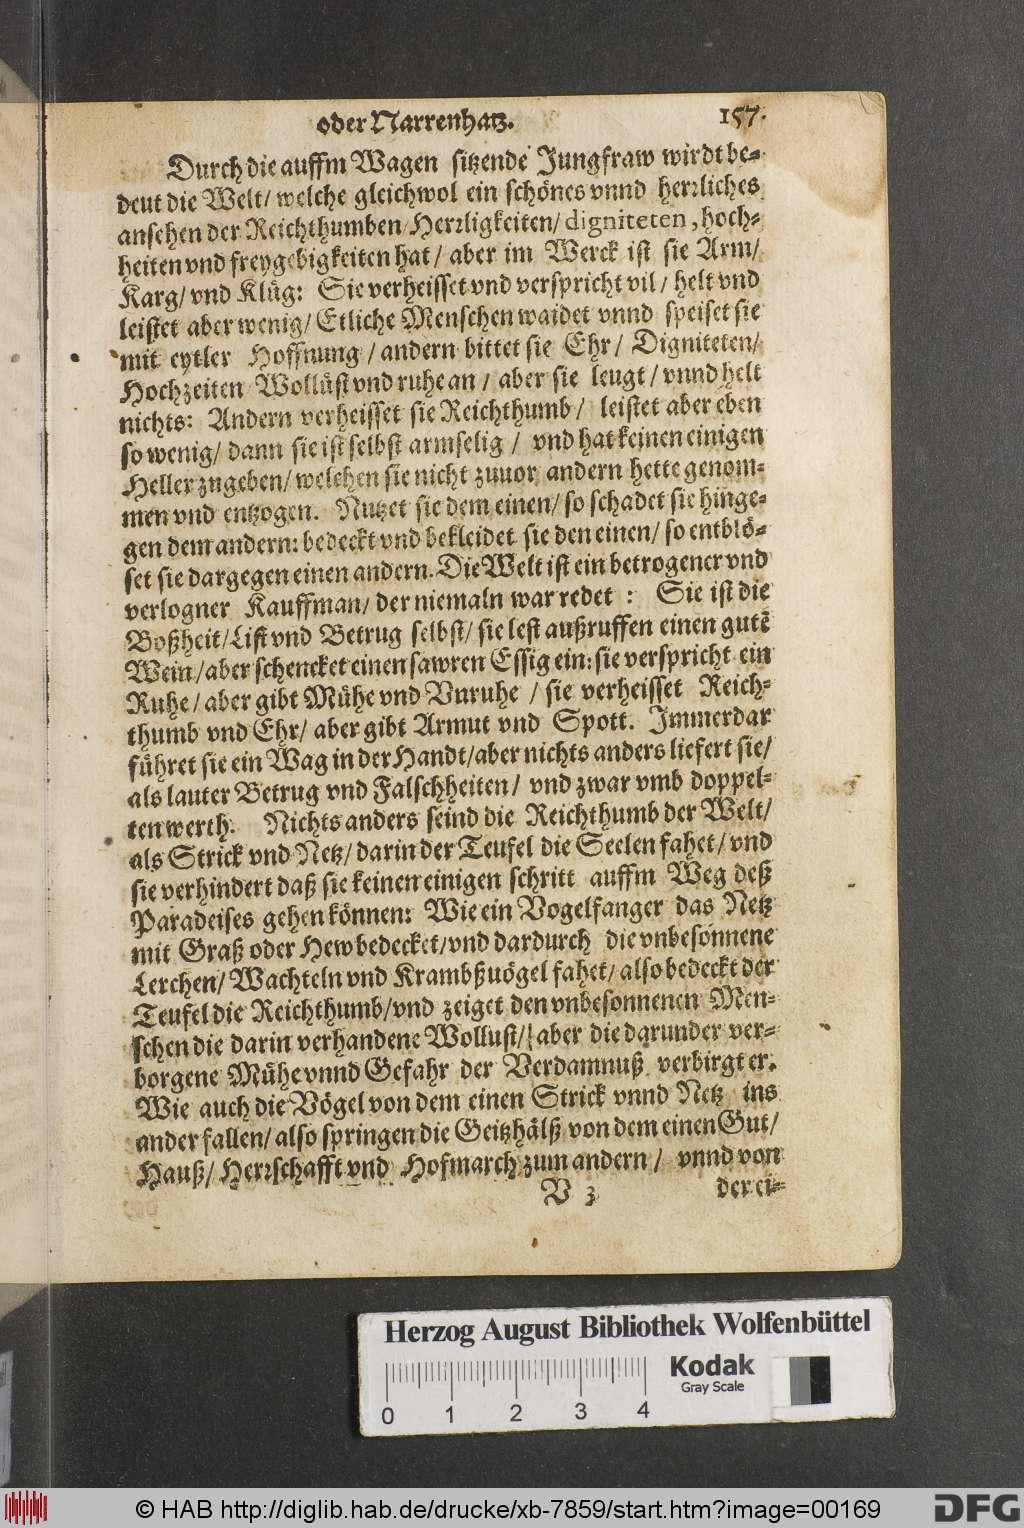 oder Narrenhatz. 157.
Durch die auffm Wagen sitzende Jungfraw wirdt be-
deut die Welt/ welche gleichwol ein schönes vnnd herrliches
ansehen der Reichthumben/ Herrligkeiten/ digniteten, hoch-
heiten vnd freygebigkeiten hat/ aber im Werck ist sie Arm/
Karg/ vnd Klüg: Sie verheisset vnd verspricht vil/ helt vnd
leistet aber wenig/ Etliche Menschen waidet vnnd speiset sie
mit eytler Hoffnung/ andern bittet sie Ehr/ Digniteten/
Hochzeiten Wollüst vnd ruhe an/ aber sie leugt/ vnnd helt
nichts: Andern verheisset sie Reichthumb/ leistet aber eben
so wenig/ dann sie ist selbst armselig/ vnd hat keinen einigen
Heller zugeben/ welchen sie nicht zuuor andern hette genom-
men vnd entzogen. Nutzet sie dem einen/ so schadet sie hinge-
gen dem andern: bedeckt vnd bekleidet sie den einen/ so entblö-
set sie dargegen einen andern. Die Welt ist ein betrogener vnd
verlogner Kauffman/ der niemaln war redet: Sie ist die
Boßheit/ List vnd Betrug selbst/ sie lest außruffen einen gutē
Wein/ aber schencket einen sawren Essig ein: sie verspricht ein
Ruhe/ aber gibt Mühe vnd Vnruhe/ sie verheisset Reich-
thumb vnd Ehr/ aber gibt Armut vnd Spott. Immerdar
führet sie ein Wag in der Handt/ aber nichts anders liefert sie/
als lauter Betrug vnd Falschheiten/ vnd zwar vmb doppel-
ten werth. Nichts anders seind die Reichthumb der Welt/
als Strick vnd Netz/ darin der Teufel die Seelen fahet/ vnd
sie verhindert daß sie keinen einigen schritt auffm Weg deß
Paradeises gehen können: Wie ein Vogelfanger das Netz
mit Graß oder Hew bedecket/ vnd dardurch die vnbesonnene
Lerchen/ Wachteln vnd Krambßuögel fahet/ also bedeckt der
Teufel die Reichthumb/ vnd zeiget den vnbesonnenen Men-
schen die darin verhandene Wollust/ aber die darunder ver-
borgene Mühe vnnd Gefahr der Verdamnuß verbirgt er.
Wie auch die Vögel von dem einen Strick vnnd Netz ins
ander fallen/ also springen die Geitzhälß von dem einen Gut/
Hauß/ Herrschafft vnd Hofmarch zum andern/ vnnd von
V 3 der ei-
Herzog August Bibliothek Wolfenbüttel
Kodak
Gray Scale
0 1 2 3 4
© HAB http://diglib.hab.de/drucke/xb-7859/start.htm?image=00169
DFG